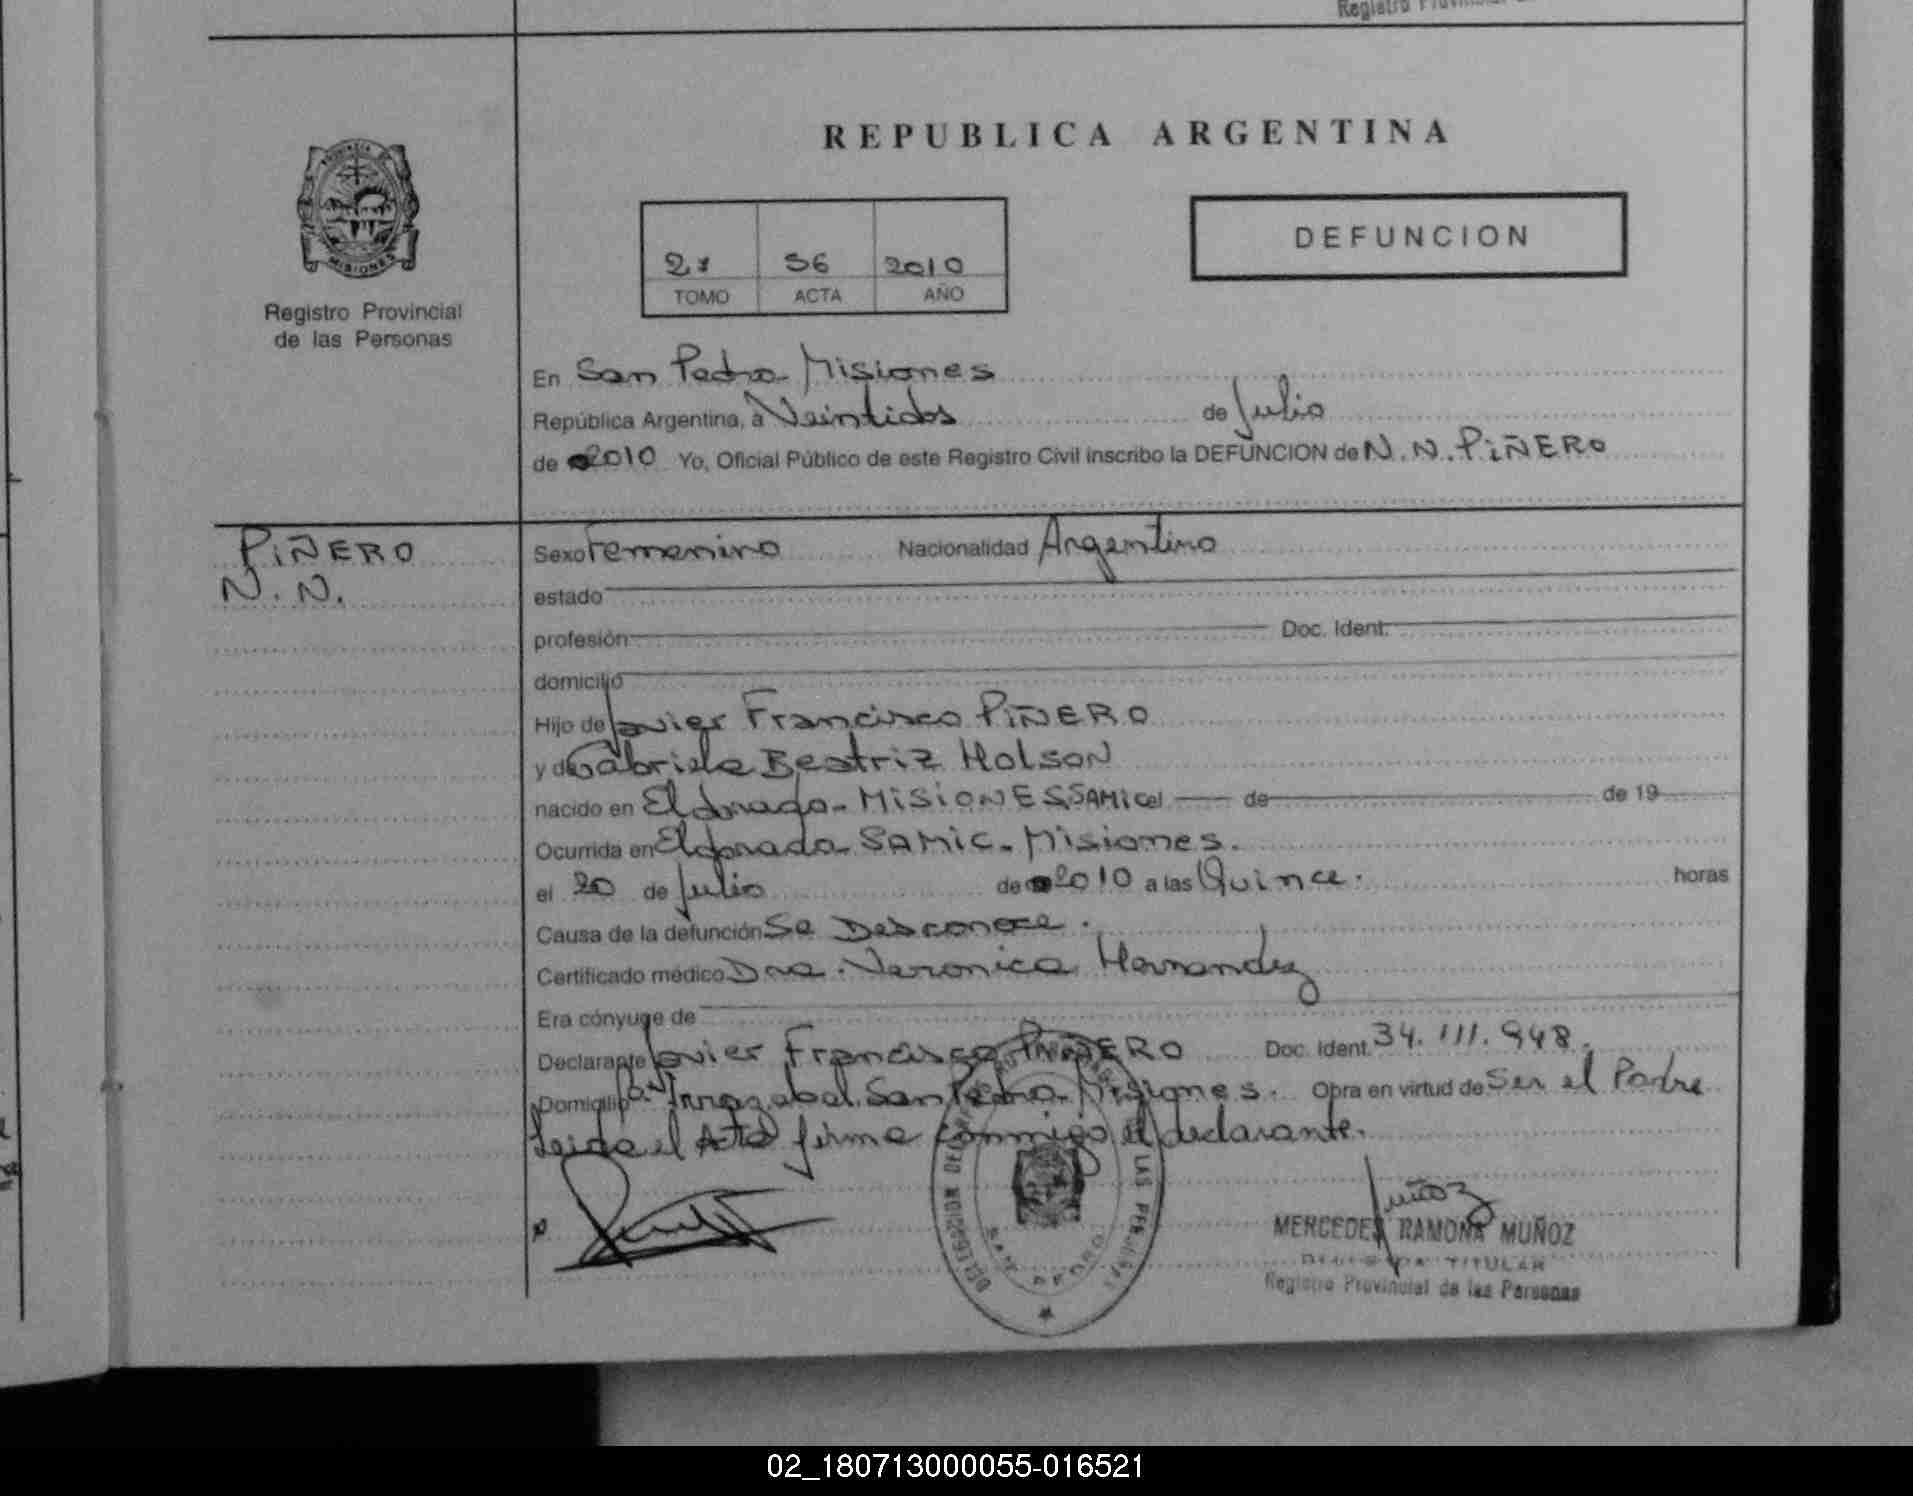 Registro Provincial
REPUBLICA ARGENTINA
PROVINCIA DE
MISIONES
Registro Provincial
de las Personas
DEFUNCION
56 2010
TOMO ACTA AÑO
En San Pedro - Misiones
República Argentina, a Veintidos de Julio
de 2010 Yo, Oficial Público de este Registro Civil inscribo la DEFUNCION de N. N. PiÑERO
PiÑERO
N. N.
Sexo Femenino Nacionalidad Argentina
estado
profesión Doc. Ident.
domicilio
Hijo de Javier Francisco PiÑERO
y de Gabriela Beatriz Holson
nacido en Eldorado - MISIONES SAMIC el de de 19
Ocurrida en Eldorado SAMIC - Misiones.
el 20 de Julio de 2010 a las Quince. horas
Causa de la defunción Se Desconoce.
Certificado médico Dra. Veronica Hernandez
Era cónyuge de
Declarante Javier Francisco PIÑERO Doc. Ident. 34.111.948.
Domicilio Irrazabal San Pedro - Misiones. Obra en virtud de Ser el Padre
Leida el Acta firma conmigo el declarante.
DELEGACION LAS PERSONAS
SAN PEDRO
Muñoz
MERCEDES RAMONA MUÑOZ
TITULAR
Registro Provincial de las Personas
02_180713000055-016521